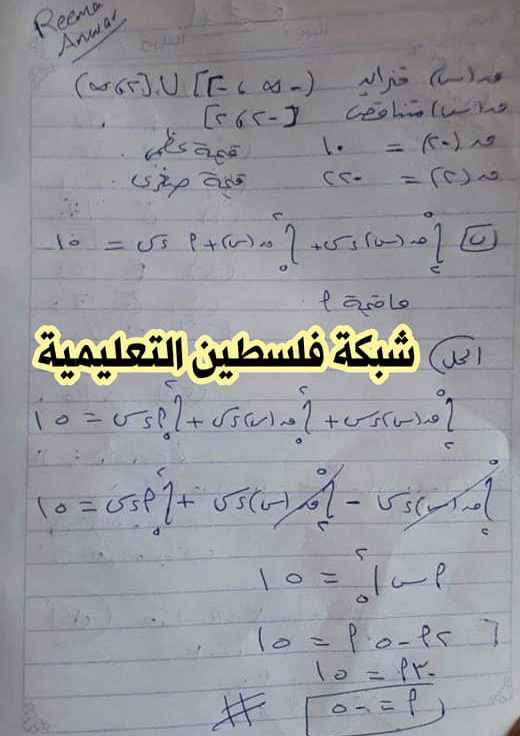 Reema
Anwar
ق(س) متزايد (-∞ ، -٢] ∪ [٢ ، ∞)
ق(س) متناقص [-٢ ، ٢]
ق(-٢) = ١٠ قيمة عظمى
ق(٢) = -٢٢ قيمة صغرى
ب) ∫₂⁵ ق(س) دس + ∫₅² ق(س) + أ دس = ١٥
ما قيمة أ
شبكة فلسطين التعليمية
الحل)
∫₂⁵ ق(س) دس + ∫₅² ق(س) دس + ∫₅² أ دس = ١٥
∫₂⁵ ق(س) دس - ∫₂⁵ ق(س) دس + ∫₅² أ دس = ١٥
أ س |₅² = ١٥
٢أ - ٥أ = ١٥
-٣أ = ١٥
أ = -٥ #